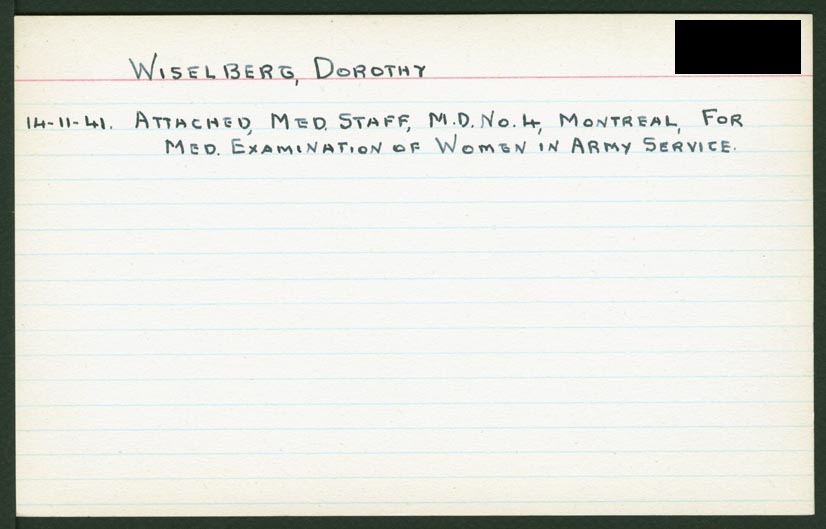 WISELBERG, DOROTHY
14-11-41. ATTACHED, MED. STAFF, M.D. NO. 4, MONTREAL, FOR
MED. EXAMINATION OF WOMEN IN ARMY SERVICE.